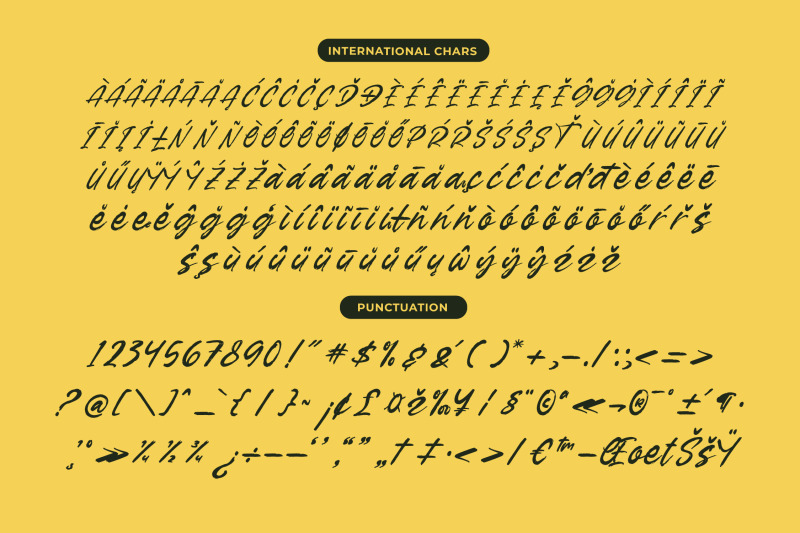 INTERNATIONAL CHARS
ÀÁÂÃÄÅĀĂĄĆĈĊČÇĎĐÈÉÊËĒĔĖĘĚĜĞĠÌÍÎÏĨ
ĪĬĮİŁŃŇÑÒÓÔÕÖØŌŎŐŔŘŠŚŜŞŤÙÚÛÜŨŪŬ
ŮŰŲŸÝŶŹŻŽàáâãäåāăąçćĉċčďđèéêëē
ĕėęěĝğġģìíîïĩīĭįłñńňòóôõöōŏőŕřš
ŝşùúûüũūŭůűųŵýÿŷźżž
PUNCTUATION
1234567890!"#$%&'()*+,-./:;<=>
?@[\]^_`{|}~¡¢£¤ž‰¥¦§¨©ª«¬®¯°±´¶·
¸¹º»¼½¾¿÷–—‘’‚“”„†‡·<>/€™−ŒœŠšŸ